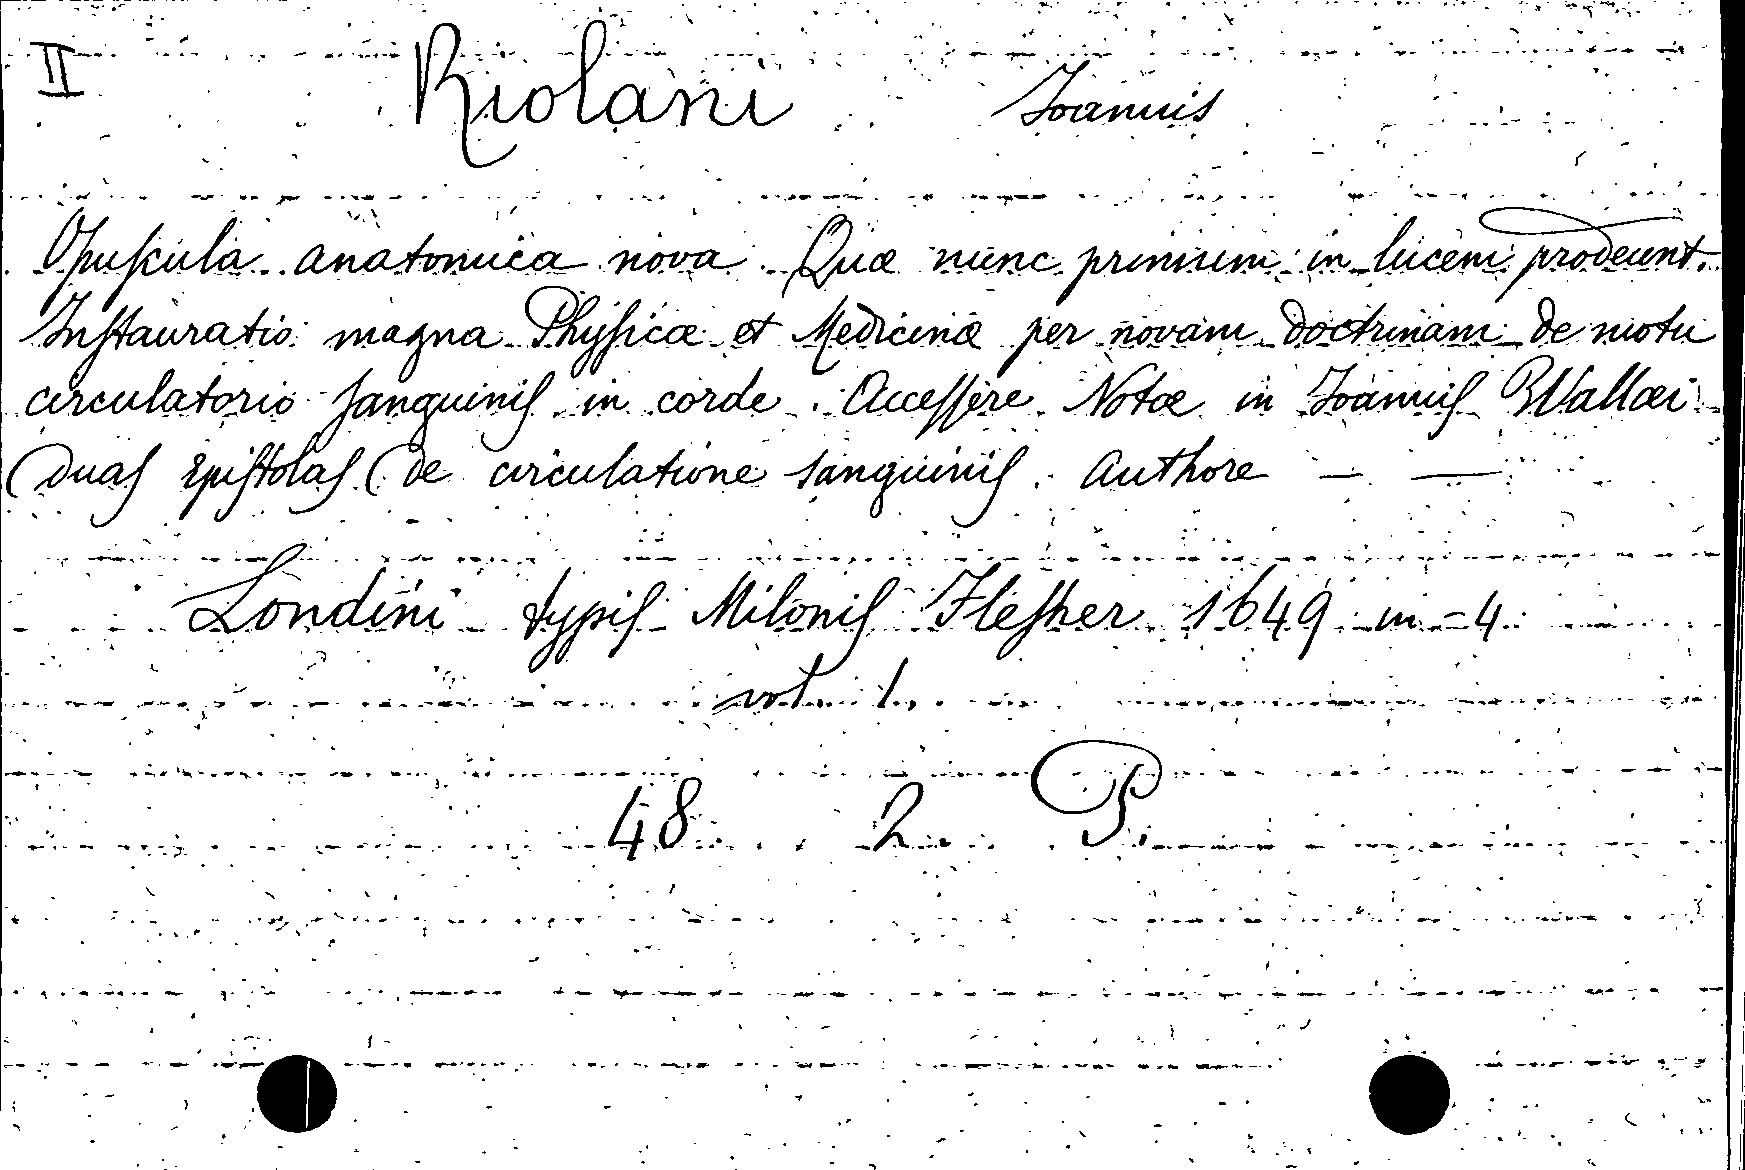 II Riolani Joannis
Opuſcula anatomica nova Quæ nunc primum in lucem prodeunt.
Inſtauratio magna Phyſicæ et Medicinæ per novam doctrinam de motu
circulatorio ſanguinis in corde. Acceſſere Notæ in Joannis Wallæi
duas epiſtolas de circulatione sanguinis. Authore — —
Londini typis Milonis Fleſher 1649 in-4
vol. 1.
48 2. P.